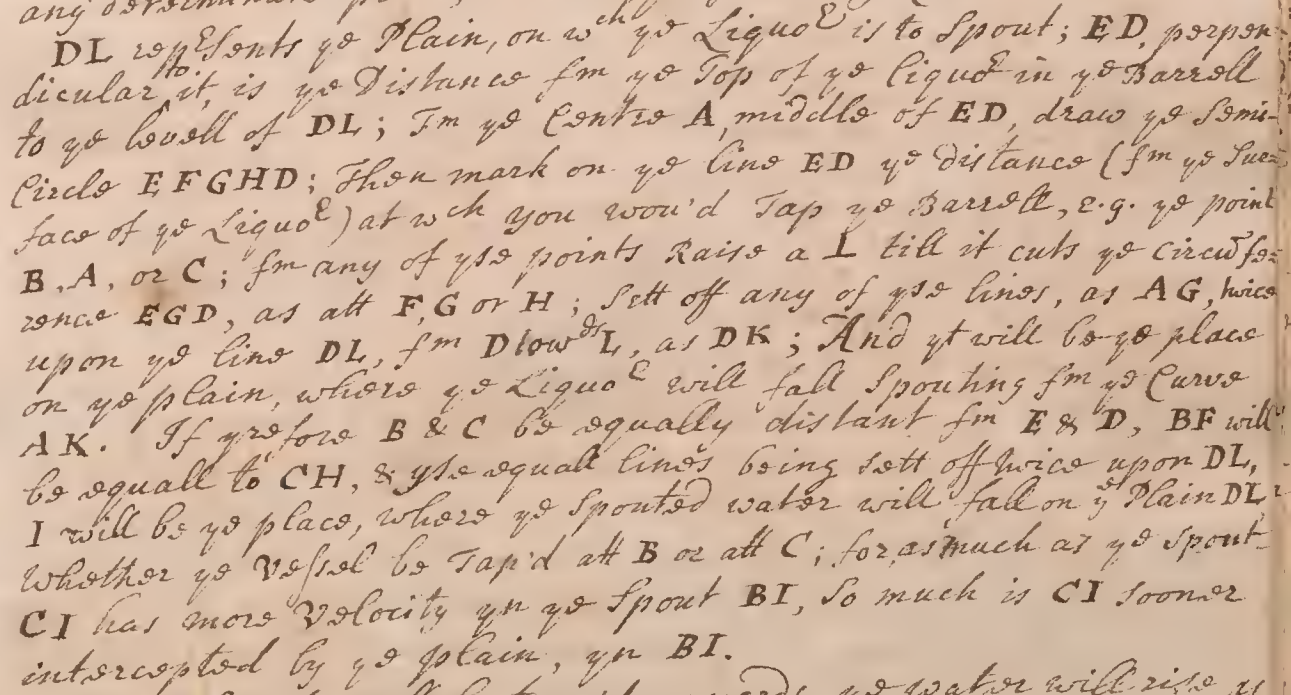 any determinate
DL repṛsents ye Plain, on wch ye Liquor is to Spout; ED, perpen-
dicular to it, is ye Distance fm ye Top of ye Liquor in ye Barrell
to ye levell of DL; Fm ye Centre A, middle of ED, draw ye Semi-
Circle EFGHD; Then mark on ye line ED ye distance (fm ye Sur-
face of ye Liquor) at wch you wou'd Tap ye Barrell, e.g. ye point
B, A, or C; fm any of yse points Raise a ⊥ till it cuts ye circūfe-
rence EGD, as att F, G or H; Sett off any of yse lines, as AG, twice
upon ye line DL, fm D towds L, as DK; And yt will be ye place
on ye plain, where ye Liquor will fall Spouting fm ye Curve
AK. If yrefore B & C be equally distant fm E & D, BF will
be equall to CH, & yse equall lines being sett off twice upon DL,
I will be ye place, where ye spouted water will fall on ye Plain DL,
Whether ye Vessel be Tap'd att B or att C; for, as much as ye spout
CI has more Velocity yn ye Spout BI, So much is CI sooner
intercepted by ye plain, yn BI.
ye water will rise